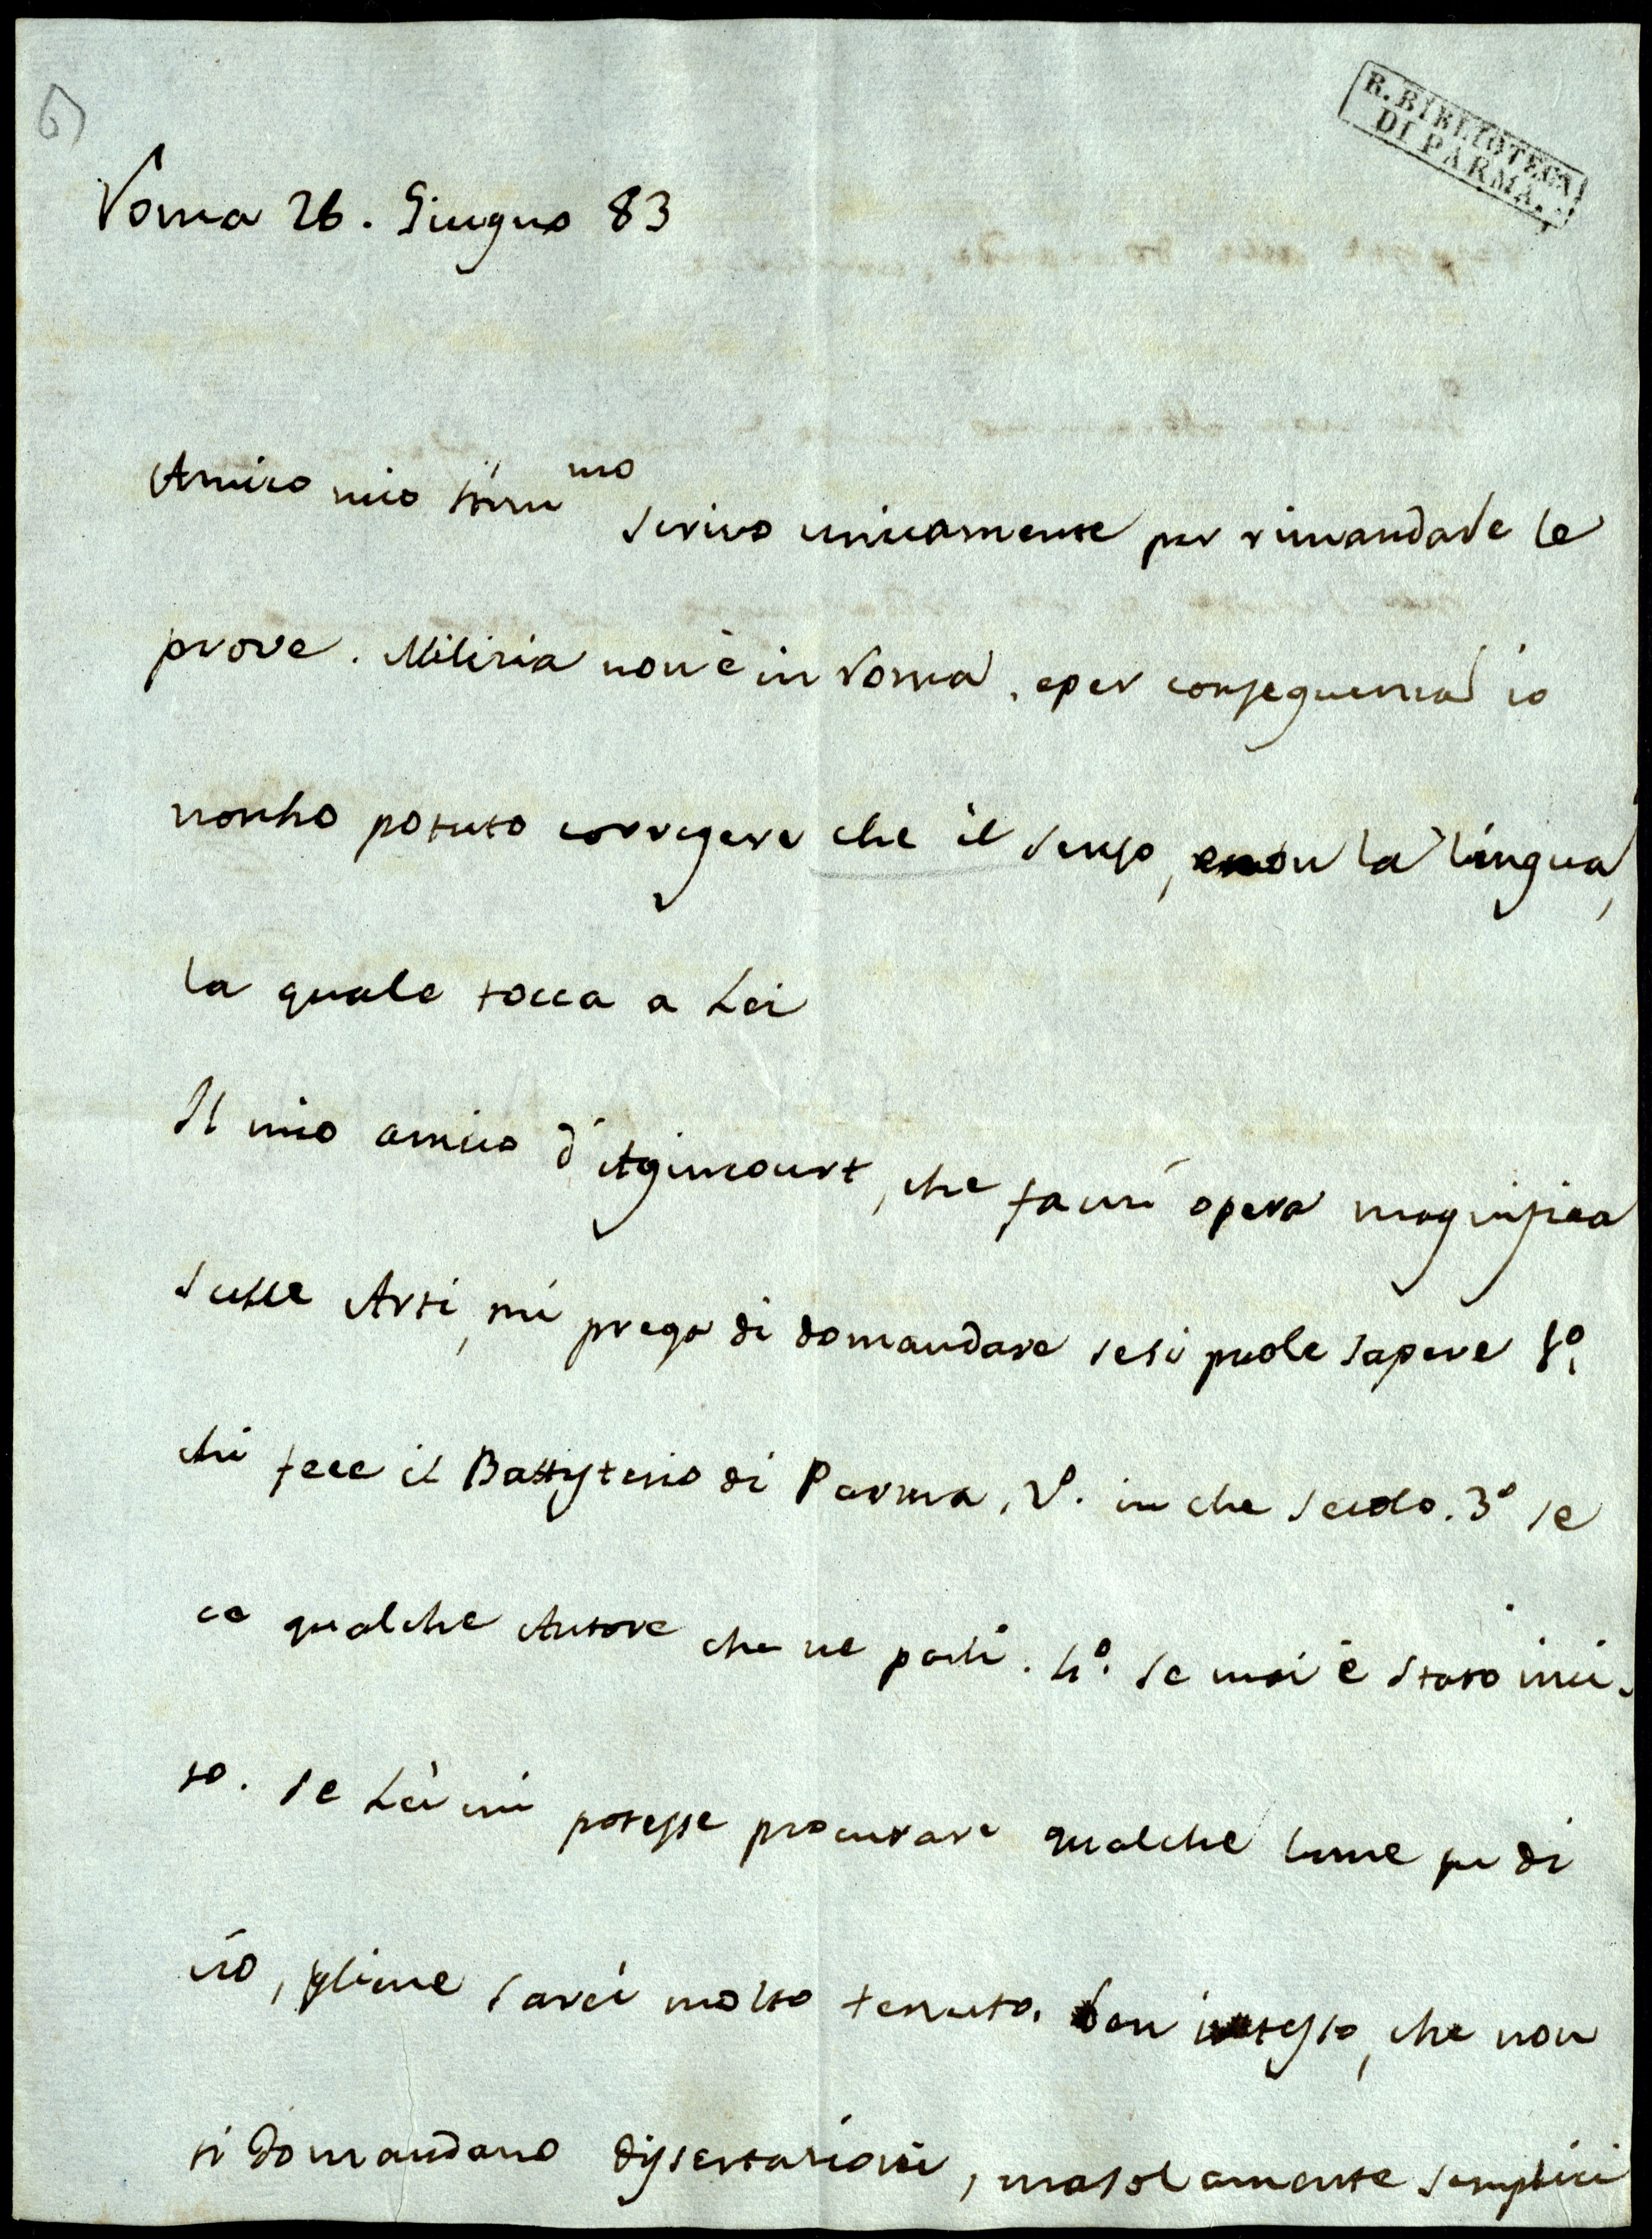 6)
R. BIBLIOTECA
DI PARMA.
Roma 26. Giugno 83
Amico mio Stim.mo
Scrivo unicamente per rimandarle le
prove. Milizia non è in Roma, e per conseguenza io
non ho potuto corregere che il senso, e non la lingua,
la quale tocca a Lei
Il mio amico d'Agincourt, che fa un' opera magnifica
sulle Arti, mi prega di domandare se si puole sapere 1º.
chi fece il Battysterio di Parma, 2º. in che secolo. 3º se
ce qualche Autore che ne parli. 4º. se mai è stato inci-
so. Se Lei mi potesse procurare qualche lume su di
ciò, gliene sarei molto tenuto. Ben inteso, che non
si domandano dissertazioni, ma solamente semplici